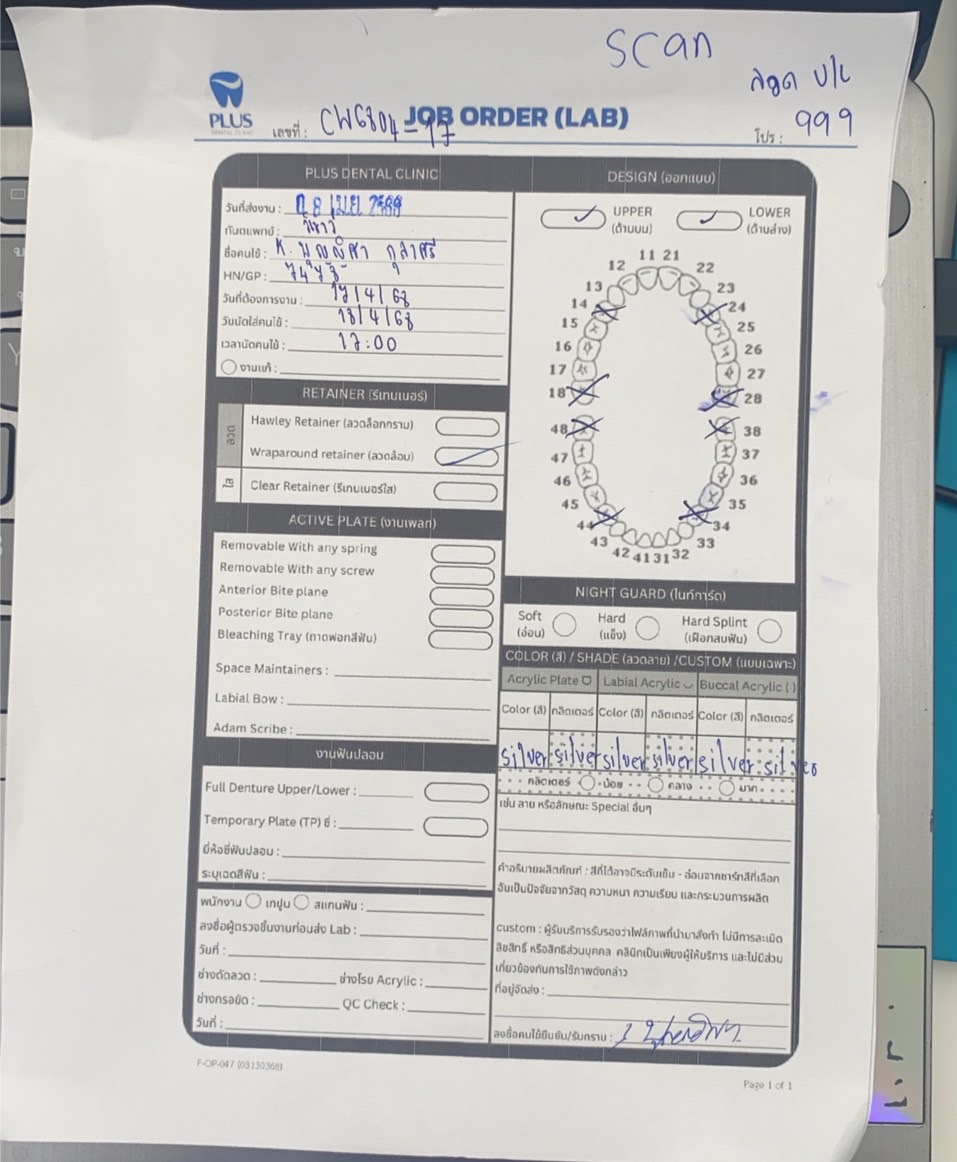 scan
ลวด บ/ล
PLUS
DENTAL CLINIC
เลขที่ : CW6804-17
JOB ORDER (LAB)
โปร : 999
PLUS DENTAL CLINIC
วันที่ส่งงาน : 08 เม.ย. 2568
ทันตแพทย์ :
ชื่อคนไข้ : K.
HN/GP :
วันที่ต้องการงาน : 17/4/68
วันนัดใส่คนไข้ : 18/4/68
เวลานัดคนไข้ : 17:00
งานแก้ :
RETAINER (รีเทนเนอร์)
ลวด
Hawley Retainer (ลวดล็อกกราม)
Wraparound retainer (ลวดล้อม)
ใส
Clear Retainer (รีเทนเนอร์ใส)
ACTIVE PLATE (งานเพลท)
Removable With any spring
Removable With any screw
Anterior Bite plane
Posterior Bite plane
Bleaching Tray (ถาดฟอกสีฟัน)
Space Maintainers :
Labial Bow :
Adam Scribe :
งานฟันปลอม
Full Denture Upper/Lower :
Temporary Plate (TP) ซี่ :
ยี่ห้อซี่ฟันปลอม :
ระบุเฉดสีฟัน :
พนักงาน เทปูน สแกนฟัน :
ลงชื่อผู้ตรวจชิ้นงานก่อนส่ง Lab :
วันที่ :
ช่างดัดลวด : ช่างโรย Acrylic :
ช่างกรอขัด : QC Check :
วันที่ :
DESIGN (ออกแบบ)
UPPER (ด้านบน)
LOWER (ด้านล่าง)
11 21
12 22
13 23
14 24
15 25
16 26
17 27
18 28
48 38
47 37
46 36
45 35
44 34
43 33
42 41 31 32
NIGHT GUARD (ไนท์การ์ด)
Soft (อ่อน)
Hard (แข็ง)
Hard Splint (เฝือกสบฟัน)
COLOR (สี) / SHADE (ลวดลาย) /CUSTOM (แบบเฉพาะ)
Acrylic Plate Labial Acrylic Buccal Acrylic ( )
Color (สี) กลิตเตอร์ Color (สี) กลิตเตอร์ Color (สี) กลิตเตอร์
silver silver silver silver silver silver
กลิตเตอร์ น้อย กลาง มาก
เช่น ลาย หรือลักษณะ Special อื่นๆ
คำอธิบายผลิตภัณฑ์ : สีที่ได้อาจมีระดับเข้ม - อ่อนจากชาร์ทสีที่เลือก
อันเป็นปัจจัยจากวัสดุ ความหนา ความเรียบ และกระบวนการผลิต
custom : ผู้รับบริการรับรองว่าไฟล์ภาพที่นำมาสั่งทำ ไม่มีการละเมิด
ลิขสิทธิ์ หรือสิทธิส่วนบุคคล คลินิกเป็นเพียงผู้ให้บริการ และไม่มีส่วน
เกี่ยวข้องกับการใช้ภาพดังกล่าว
ที่อยู่จัดส่ง :
ลงชื่อคนไข้ยืนยัน/รับทราบ :
F-OP-047 (03130368)
Page 1 of 1